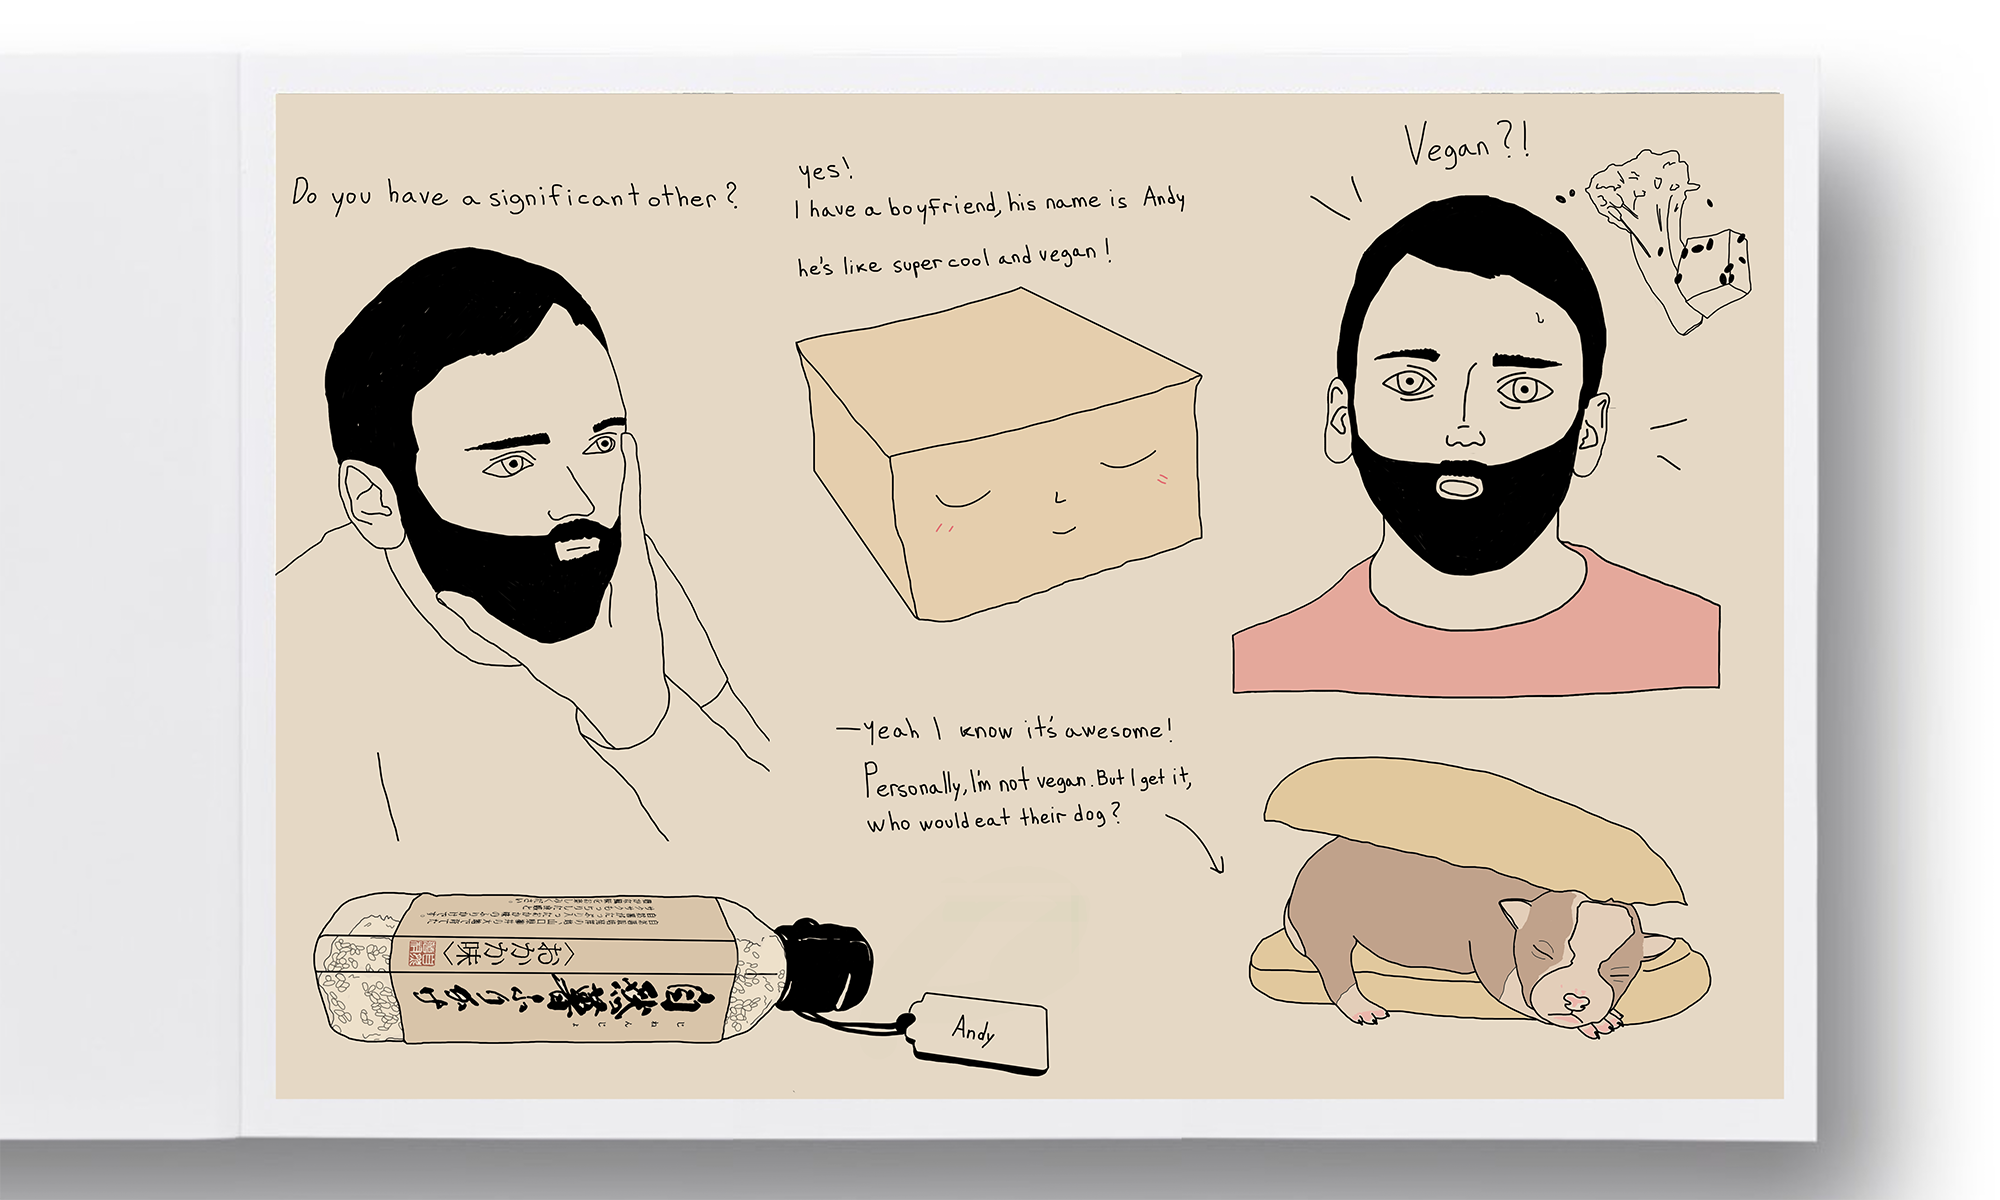 Do you have a significant other?
yes!
I have a boyfriend, his name is Andy
he's like super cool and vegan!
Vegan?!
—Yeah I know it's awesome!
Personally, I'm not vegan. But I get it,
who would eat their dog?
じねんじょ
自然薯ふりかけ
〈おかか味〉
Andy